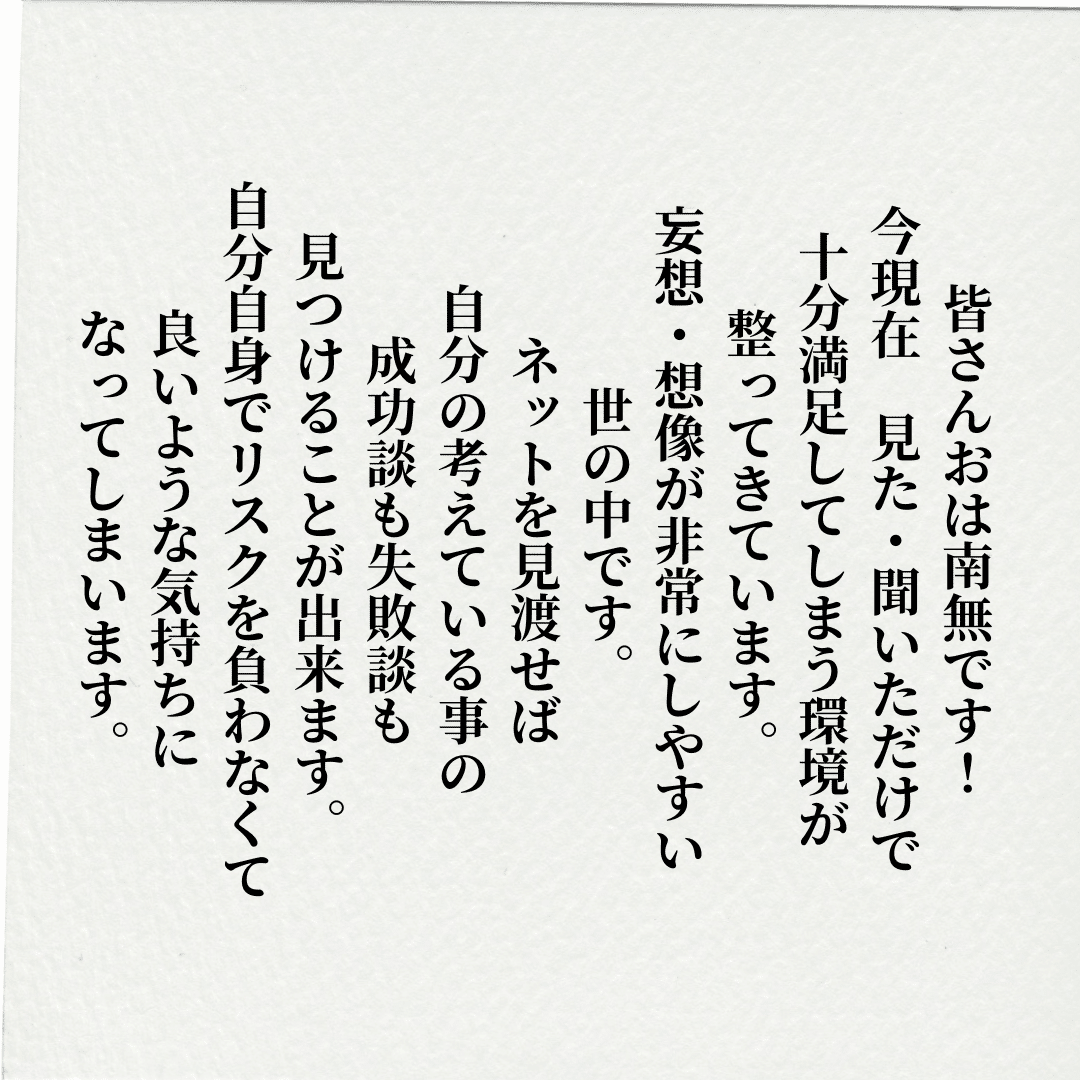 皆さんおは南無です！
今現在　見た・聞いただけで
十分満足してしまう環境が
整ってきています。
妄想・想像が非常にしやすい
世の中です。
ネットを見渡せば
自分の考えている事の
成功談も失敗談も
見つけることが出来ます。
自分自身でリスクを負わなくて
良いような気持ちに
なってしまいます。